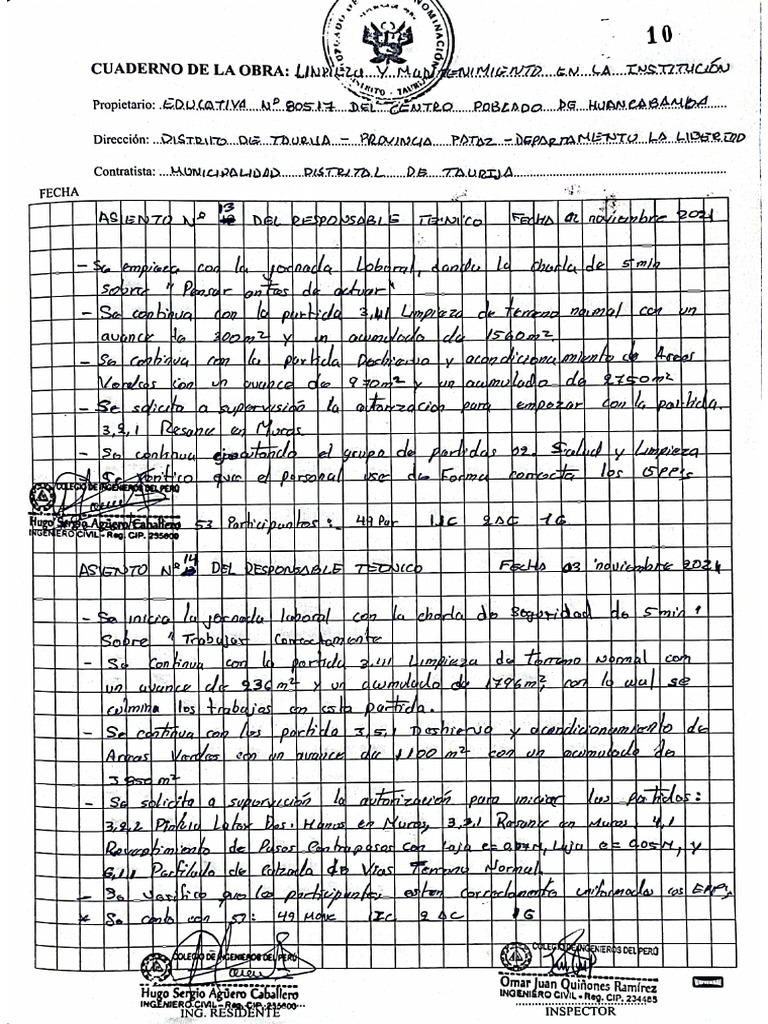 10
CUADERNO DE LA OBRA: LIMPIEZA Y MANTENIMIENTO EN LA INSTITUCIÓN
Propietario: EDUCATIVA Nº 80517 DEL CENTRO POBLADO DE HUANCABAMBA
Dirección: DISTRITO DE TAURIJA - PROVINCIA PATAZ - DEPARTAMENTO LA LIBERTAD
Contratista: MUNICIPALIDAD DISTRITAL DE TAURIJA
FECHA
ASIENTO Nº 13 DEL RESPONSABLE TECNICO FECHA 02 noviembre 2021
- Se empieza con la jornada Laboral, dando la charla de 5 min
sobre " Pensar antes de actuar"
- Se continua con la partida 3.1.1 Limpieza de terreno normal con un
avance de 200m² y un acumulado de 1560m²
- Se continua con la partida Deshierva y acondicionamiento de Areas
Verdes con un avance de 970m² y un acumulado de 2750m²
- Se solicita a supervisión la autorizacion para empezar con la partida.
3,2,1 Resane en Muros.
- Se continua ejecutando el grupo de partidas 02. Salud y Limpieza
Se verifico que el personal use de Forma correcta los EPP's
COLEGIO DE INGENIEROS DEL PERÚ
Hugo Sergio Agüero Caballero
INGENIERO CIVIL - Reg. CIP. 235800
53 Participantes : 49 Par 1JC 2AC 1G
ASIENTO Nº 14 DEL RESPONSABLE TECNICO FECHA 03 noviembre 2021
- Se inicia la jornada laboral con la charla de seguridad de 5 min"
Sobre " Trabajar Correctamente
- Se continua con la partida 3.1.1 Limpieza de terreno Normal con
un avance de 236m² y un acumulado de 1796m², con lo cual se
culmina los trabajos en esta partida.
- Se continua con las partida 3,5,1 Deshierva y acondicionamiento de
Areas Verdes con un avance de 1100 m² con un acumulado de
3850m²
- Se solicita a supervicción la autorización para iniciar las Partidas:
3,2,2 Pintura Latex Dos. Manos en Muros, 3,3,1 Resane en Muros. 4,1
Revestimiento de Pasos Contrapasos con Laja e= 0.07M, Laja e= 0.05M, y
6,1,1 Perfilado de calzada de Vias Terreno Normal.
- Se verifico que los participantes esten correctamente uniformados EPP's
* Se conto con 52: 49 1C 2AC 1G
COLEGIO DE INGENIEROS DEL PERÚ
Hugo Sergio Agüero Caballero
INGENIERO CIVIL - Reg. CIP. 235800
ING. RESIDENTE
COLEGIO DE INGENIEROS DEL PERÚ
Omar Juan Quiñones Ramírez
INGENIERO CIVIL - Reg. CIP. 234485
INSPECTOR